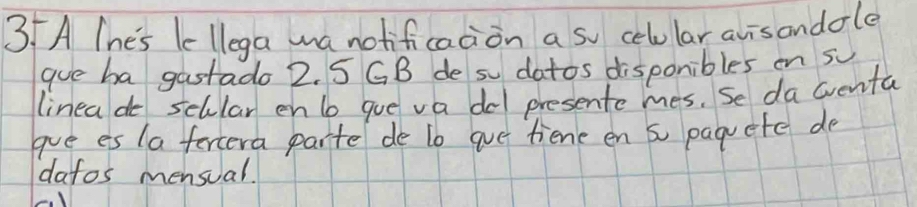 3.- A Ine's le llega una notificación a su celular avisandole
que ha gastado 2.5 GB de su datos disponibles en su
linea de selular en lo que va del presente mes. Se da cuenta
que es la tercera parte de lo que tiene en su paquete de
datos mensual.
a)